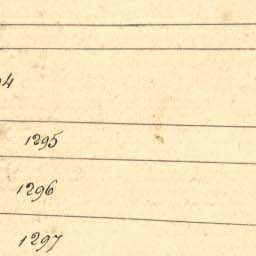 4
1295
1296
1297